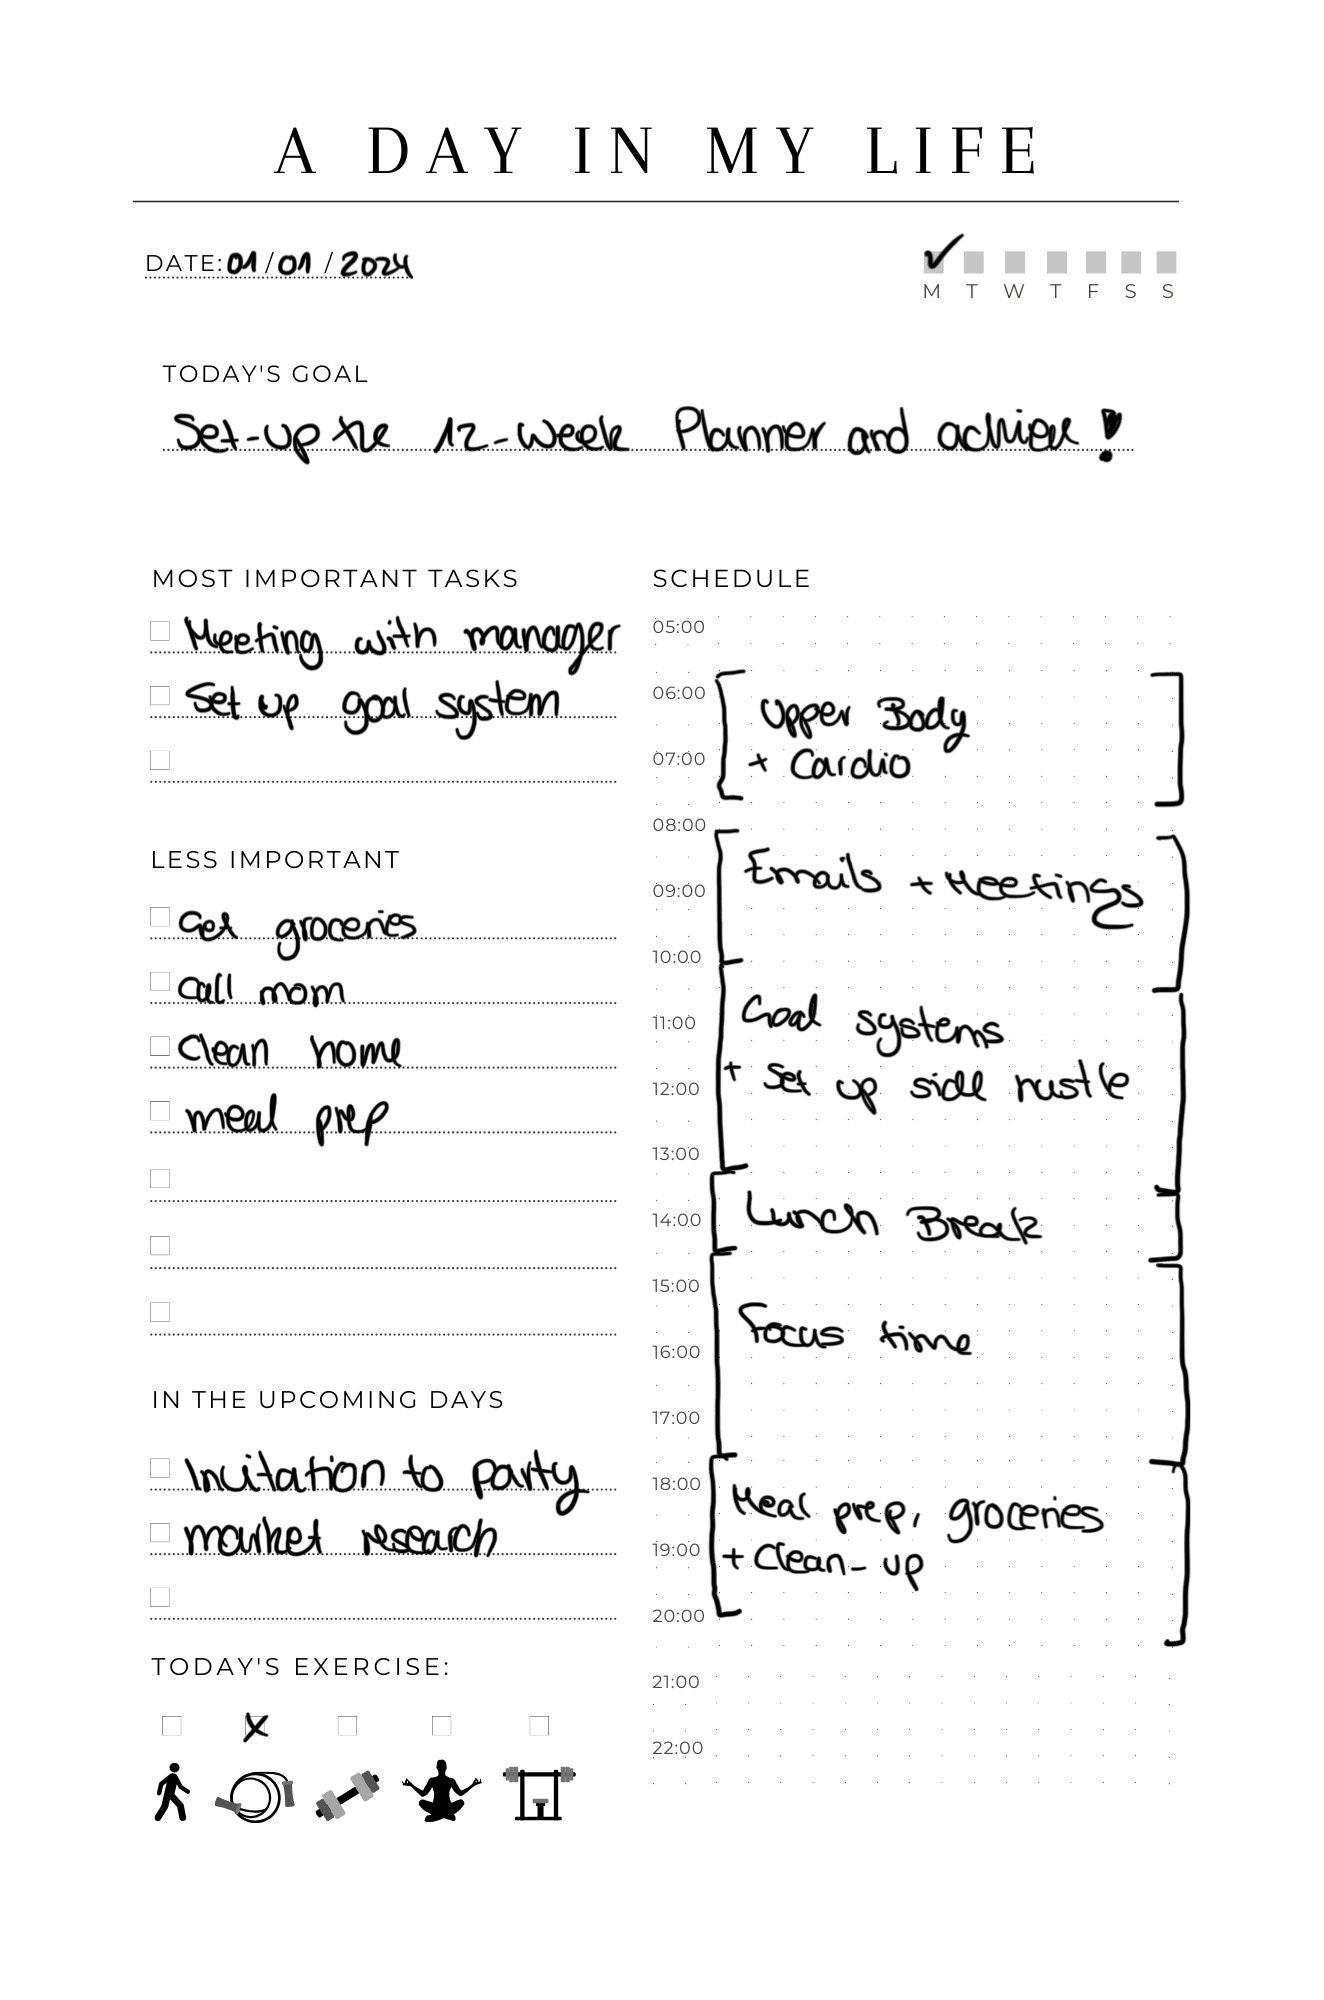 A DAY IN MY LIFE
DATE: 01 / 01 / 2024
M T W T F S S
TODAY'S GOAL
Set-up the 12-week Planner and achieve!
MOST IMPORTANT TASKS
Meeting with manager
Set up goal system
LESS IMPORTANT
Get groceries
call mom
Clean home
meal prep
IN THE UPCOMING DAYS
Invitation to party
market research
TODAY'S EXERCISE:
SCHEDULE
05:00
06:00
Upper Body
07:00
+ Cardio
08:00
Emails + Meetings
09:00
10:00
Goal systems
11:00
+ Set up side hustle
12:00
13:00
14:00
Lunch Break
15:00
Focus time
16:00
17:00
18:00
Meal prep, groceries
19:00
+ Clean-up
20:00
21:00
22:00